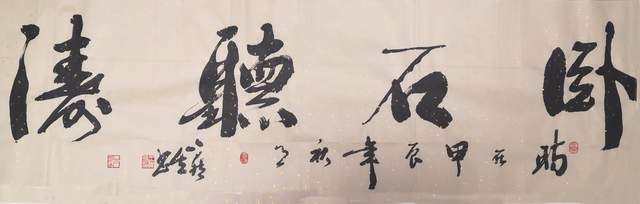 卧石聽濤
時在甲辰年秋月